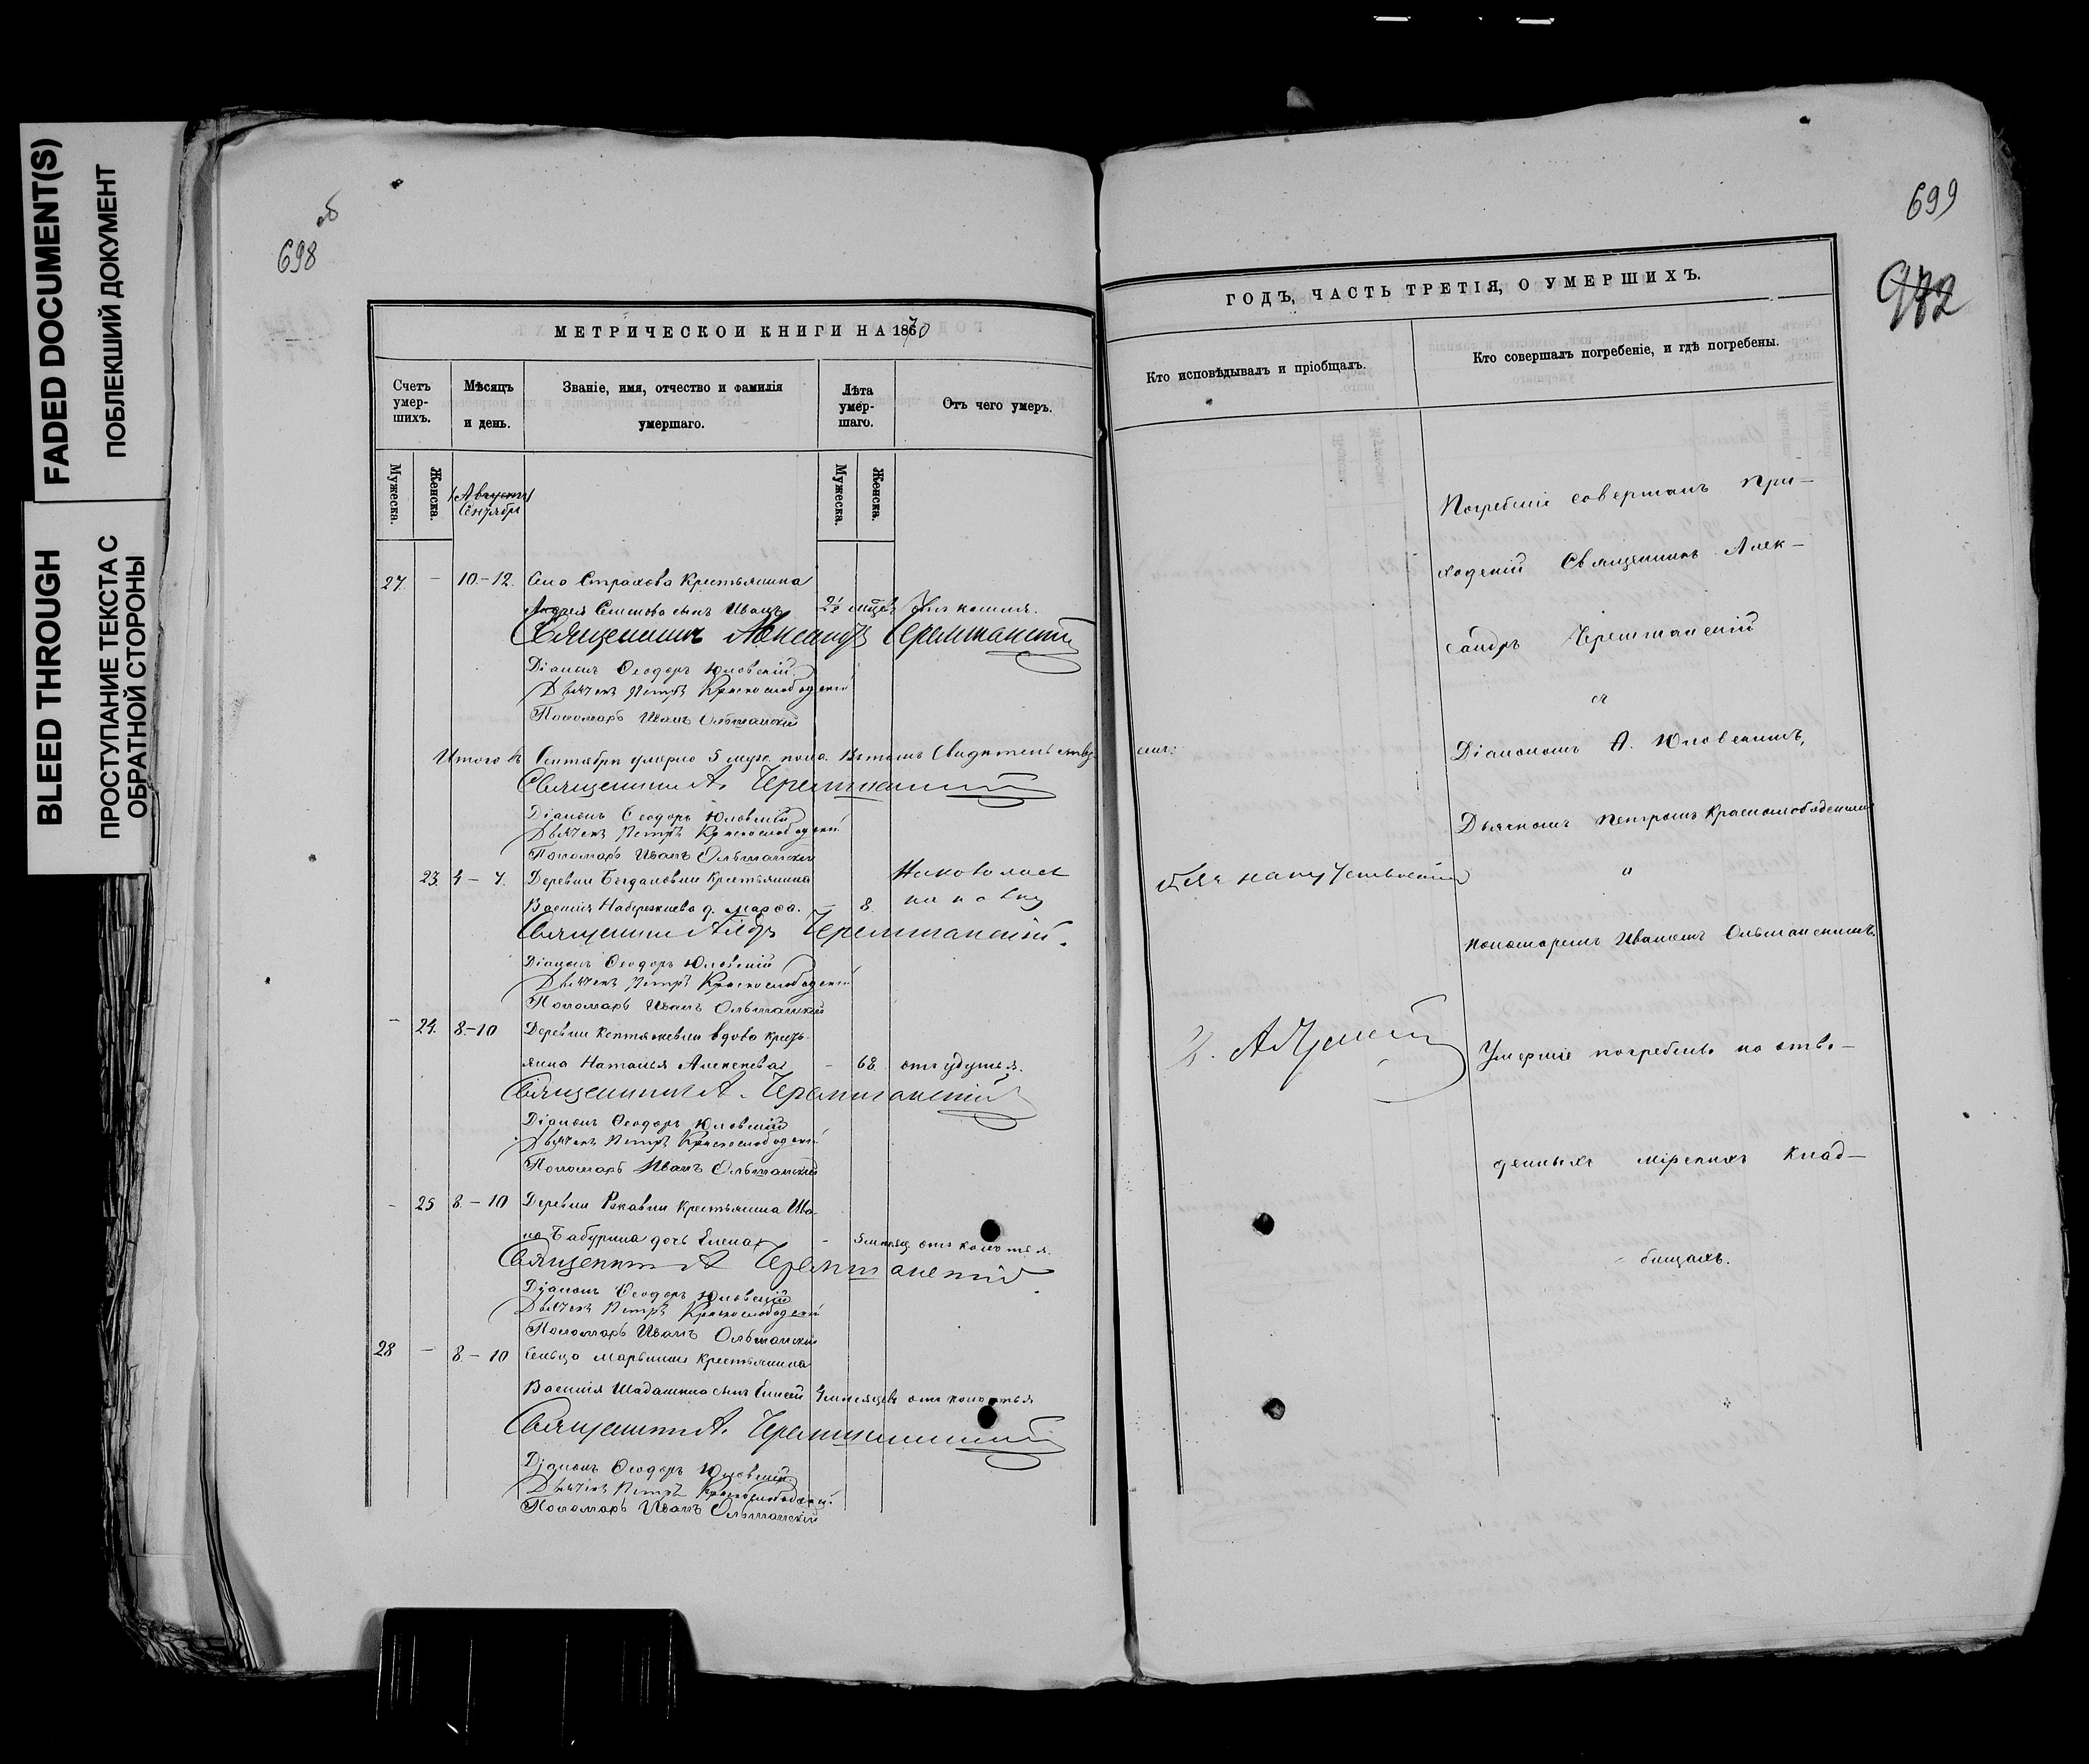 FADED DOCUMENT(S)
ПОБЛЕКШИЙ ДОКУМЕНТ
BLEED THROUGH
ПРОСТУПАНИЕ ТЕКСТА С
ОБРАТНОЙ СТОРОНЫ
об
698
МЕТРИЧЕСКОЙ КНИГИ НА 1870
Счетъ умер-шихъ.
Мѣсяцъ и день.
Званіе, имя, отчество и фамилія умершаго.
Лѣта умер-шаго.
Отъ чего умеръ.
Мужеска.
Женска.
Августъ
Сентябрь
Мужеска.
Женска.
27 – 10.–12. Села Страхова Крестьянина
Андрея Семенова сынъ Иванъ 2½ мѣсц.
Священникъ Александръ Черемшанскій
Діаконъ Ѳеодоръ Юловскій
Дьячекъ Петръ Краснослободскій
Пономарь Иванъ Ольшанскій
Итого въ Сентябрѣ умерло 5 муж. пола. Въ томъ свидѣтельствуемъ:
Священникъ А. Черемшанскій
Діаконъ Ѳеодоръ Юловскій
Дьячекъ Петръ Краснослободскій
Пономарь Иванъ Ольшанскій
23. 4 – 7. Деревни Богдановки Крестьянина
Василія д. Марѳа. – 8.
Священникъ Алдръ Черемшанскій.
Діаконъ Ѳеодоръ Юловскій
Дьячекъ Петръ Краснослободскій
Пономарь Иванъ Ольшанскій
– 24. 8.–10 Деревни вдова кресть-
янка Наталья Алексеева – 68 отъ удушья.
Священникъ А. Черемшанскій
Діаконъ Ѳеодоръ Юловскій
Дьячекъ Петръ Краснослободскій
Пономарь Иванъ Ольшанскій
– 25 8 – 10 Деревни Ржавки Крестьянина Ива-
на Бабурина дочь Елена – 5 месяц. отъ колотья.
Священникъ А. Черемшанскій
Діаконъ Ѳеодоръ Юловскій
Дьячекъ Петръ Краснослободскій
Пономарь Иванъ Ольшанскій
28 – 8 – 10 Сельца Марьинки Крестьянина
Василія Шадашкина сынъ 4 месяцевъ отъ колотья
Священникъ А. Черемшанскій
Діаконъ Ѳеодоръ Юловскій
Дьячекъ Петръ Краснослободскій.
Пономарь Иванъ Ольшанскій
699
972
ГОДЪ, ЧАСТЬ ТРЕТІЯ, О УМЕРШИХЪ.
Кто исповѣдывалъ и пріобщалъ.
Кто совершалъ погребеніе, и гдѣ погребены.
Погребеніе совершалъ При-
ходскій Священникъ Алек-
сандръ Черемшанскій
съ
Діакономъ Ѳ. Юловскимъ,
Дьячкомъ Петромъ Краснослободскимъ
и
пономаремъ Иваномъ Ольшанскимъ.
Умершіе погребены на отве-
денныхъ мірскихъ клад-
бищахъ.